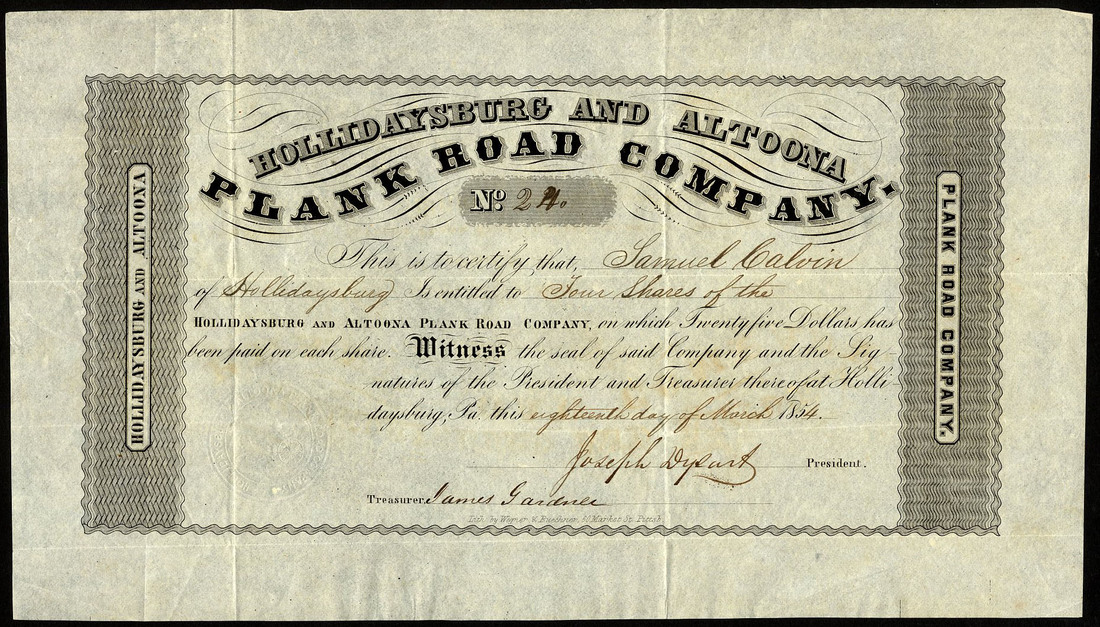 HOLLIDAYSBURG AND ALTOONA
PLANK ROAD COMPANY.
No. 24.
This is to certify that, Samuel Calvin
of Hollidaysburg Is entitled to Four Shares of the
HOLLIDAYSBURG AND ALTOONA PLANK ROAD COMPANY, on which Twenty five Dollars has
been paid on each share. Witness the seal of said Company and the Sig-
natures of the President and Treasurer thereof at Holli-
daysburg, Pa. this eighteenth day of March 1854.
Joseph Dysart President.
Treasurer. James Gardner
Lith. by Wagner & Buechner, Market St. Pittsb.
HOLLIDAYSBURG AND ALTOONA
PLANK ROAD COMPANY.